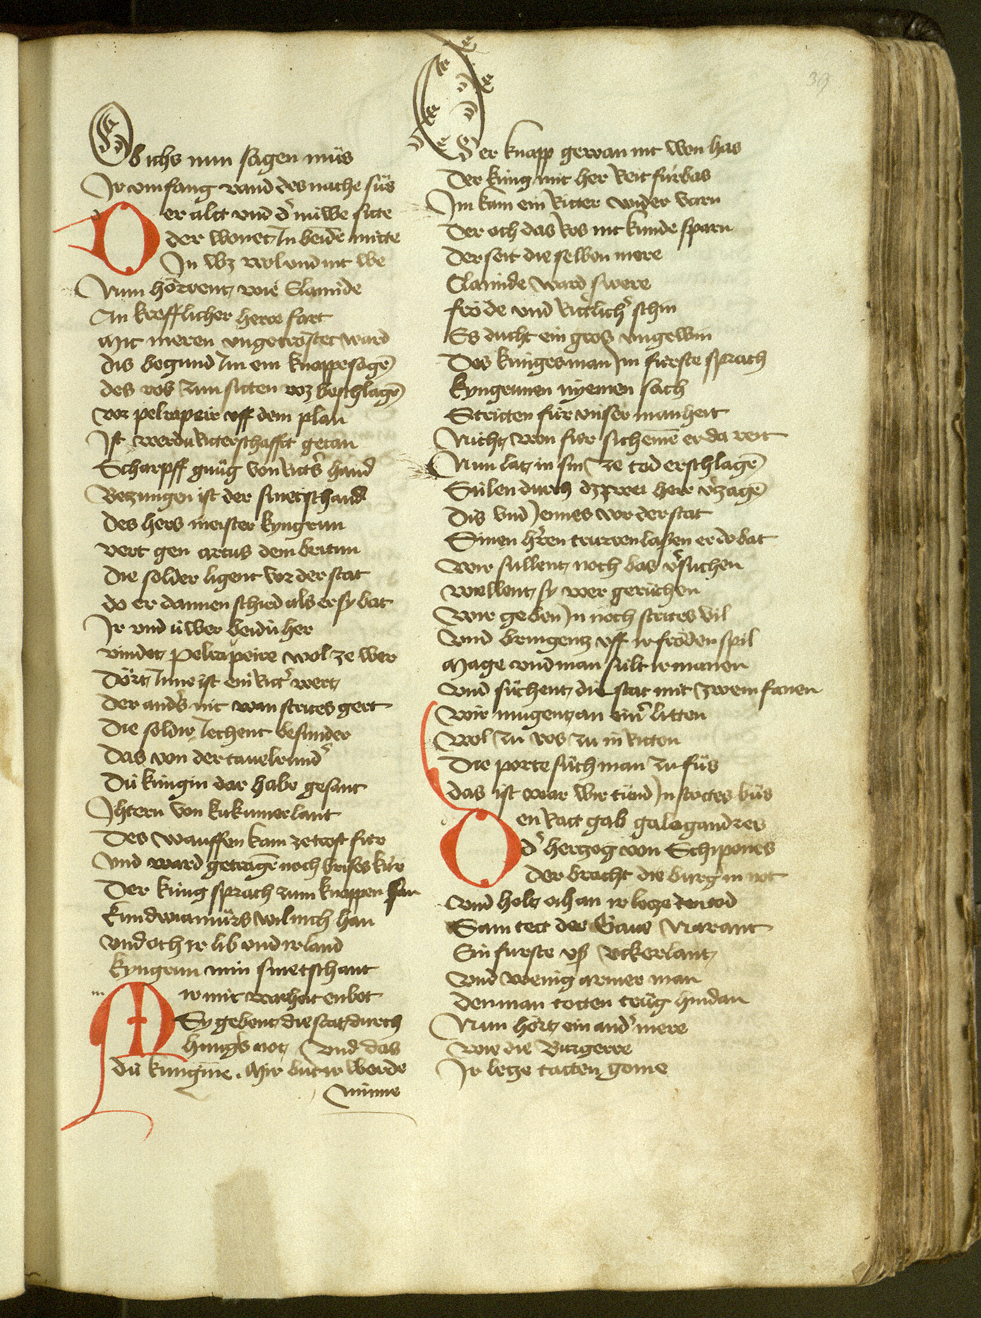 39
Ob ichs nun sagen müs
Ir vmfang vand des nache süs
Der alt vnd d' nüwe sitte
der wonet Jn beide mitte
In wz wol vnd nit we
Nun hörent wie Clamide
An krefflicher herre fart
Mit meren vngetröstet ward
dis begund Jm ein knappe sagē
des ros zun sitten woz beschlagē
vor pelrapeir vff dem plan
Ist werdu ritterschafft getan
Scharpff gnüg von ritt's hand
Betzungen ist der sinetschand
Des hers meister kyngrun
vert gen artus dem britun
Die solder ligent vor der stat
do er dannen schied als er sy bat
Ir vnd üwer beidü her
vindet pelrapeire wol ze wer
Dört Jnne ist ein ritt' wert
der anders nit wan strites gert
Die soldn' Jechent besunder
Das von der tauelrund'
Dü küngin dar habe gesant
Ihtern von kukumerlant
Des wauffen kam ze trost fur
vnd ward getragē noch brises kür
Der küng sprach zum knappen san
Kundwiramürs wil mich han
vnd och ir lib vnd ir land
kyngrun min sinetschant
Mir mit warheit enbot
Sy gebent die stat durch
hungs not vnd das
dü küngine. Mir biut ir werde
minne
Der knapp gewan nit won has
Der küng mit her reit fürbas
Im kam ein ritter wider varn
Der och das ros nit kunde sparn
Der seit die selben mere
Clamide ward swere
fröde vnd rittlich' schin
Es ducht ein gros vngewin
Des künges man Jm fürste sprach
kyngrunen nyemen sach
Stritten für vnser manheit
Nicht won für sich einē er da reit
Nun lat in sin ze tod erschlagē
Sülen durch dz zwei herr v'zagē
Dis vnd Jennes vor der stat
Sinen h'ren trurren lassen er do bat
Wir sullent noch bas v'suchen
wellent sy wer gerüchen
Wir geben Jn noch strites vil
Vnd bringenz vff ir fröden spil
Mage vnd man sült ir manen
Vnd süchent die stat mit zwein fanen
Wir mugent an ein' litten
Wol zu ros zu in ritten
Die porte süch man zu füs
das ist war wir tünd Jn strites büs
Den ratt gab galogandres
d' hertzog von Schipones
Der bracht die burg' in not
Vnd holt och an ir letze den tod
Sam tett der Graue Narant
Ein furste vß vckerlant
Vnd wenig armer man
Den man totten trüg hindan
Nun hört ein and' mere
Wie die Burgerre
Ir letze tatten gome